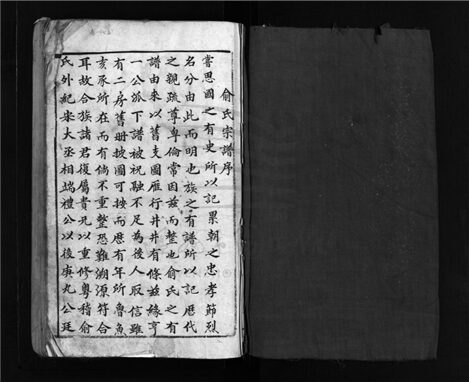 俞氏宗譜序
嘗思國之有史所以記累朝之忠孝節烈
名分由此而明也族之有譜所以記歷代
之親疏尊卑倫常因茲而整也俞氏之有
譜由來以舊支圖雁行井井有條茲緣亨
一公派下譜被祝融不足為後人取信雖
有二房舊册披圖可按而曆有年所魯魚
亥豕所在而有倘不重整恐難溯源符合
耳故合族諸君復屬貴兄以重修粵稽俞
氏外紀宋大丞相端禮公以後庚九公廷